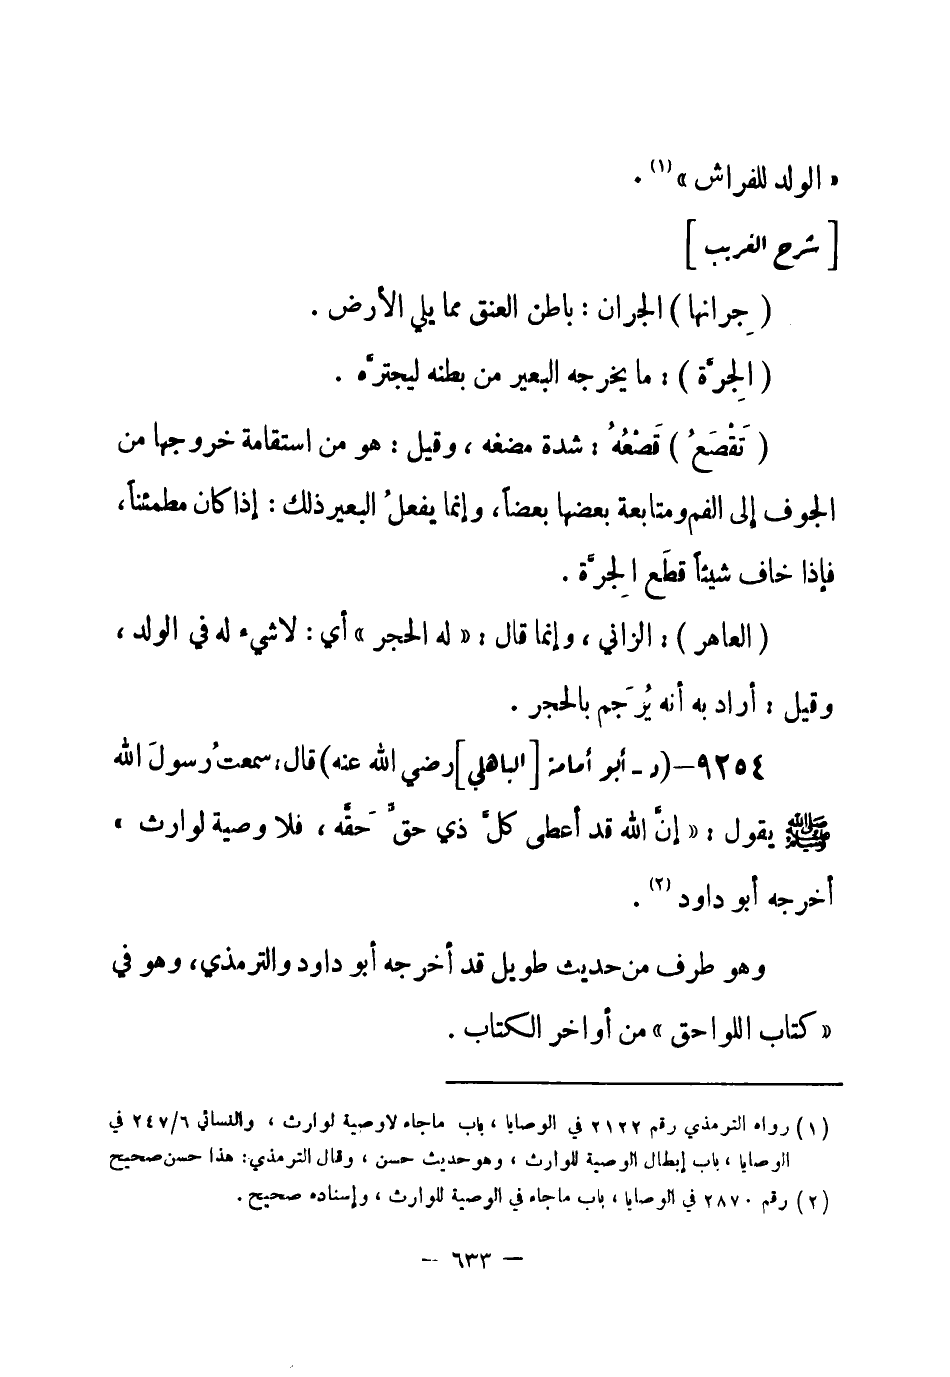 « الولد للفراش »(١) .
[ شرح الغريب ]
( جِرانها ) الجران : باطن العنق مما يلي الأرض .
( الجِرَّة ) : ما يخرجه البعير من بطنه ليجترَّه .
( تَقْصَعُ ) قَصْعُهُ : شدة مضغه ، وقيل : هو من استقامة خروجها من
الجوف إلى الفم ومتابعة بعضها بعضاً، وإنما يفعلُ البعير ذلك : إذا كان مطمئناً،
فإذا خاف شيئاً قطَع الجِرَّة .
( العاهر ) : الزاني ، وإنما قال : « له الحجر » أي : لاشيء له في الولد ،
وقيل : أراد به أنه يُرجَم بالحجر .
٩٢٥٤ – (د ـ أبو أمامة [الباهلي] رضي الله عنه) قال: سمعتُ رسولَ الله
ﷺ يقول : « إنَّ الله قد أعطى كلَّ ذي حقٍّ حَقَّه ، فلا وصية لوارث »
أخرجه أبو داود (٢) .
وهو طرف من حديث طويل قد أخرجه أبو داود والترمذي، وهو في
« كتاب اللواحق » من أواخر الكتاب .
(١) رواه الترمذي رقم ٢١٢٢ في الوصايا ، باب ماجاء لاوصية لوارث ، والنسائي ٢٤٧/٦ في
الوصايا ، باب إبطال الوصية للوارث ، وهو حديث حسن ، وقال الترمذي: هذا حسن صحيح
(٢) رقم ٢٨٧٠ في الوصايا ، باب ماجاء في الوصية للوارث ، وإسناده صحيح .
– ٦٣٣ –